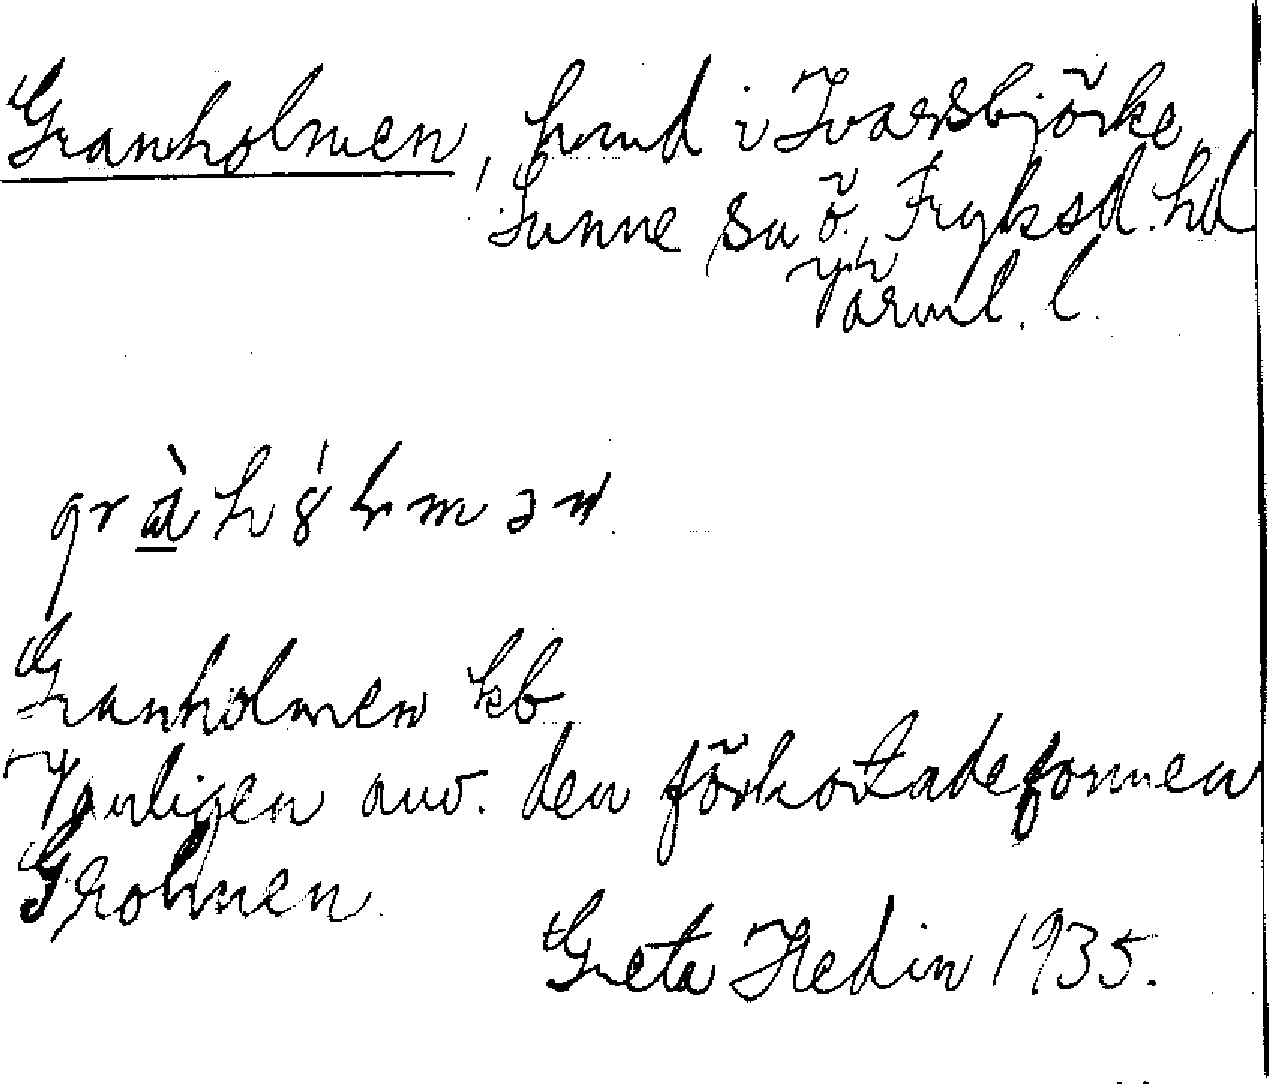 Granholmen, hmd i Ivarsbjörke,
Sunne sn ö. Fryksd. hd
Värml. l.
Granholmen kb
Vanligen anv. den förkortade formen
Grolmen.
Greta Hedin 1935.